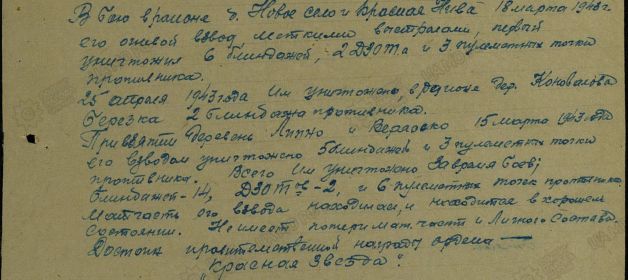 В бою в районе д. Новое село и Красная Нива 18 марта 1943 г.
его огневой взвод меткими выстрелами, первый
уничтожил 6 блиндажей, 2 ДЗОТа и 3 пулеметных точки
противника.
25 апреля 1943 года им уничтожено, в районе дер. Коновалова
Березка 2 блиндажа противника.
При взятии деревень Липно и 15 марта 1943 года
его взводом уничтожено 5 блиндажей и 3 пулеметных точки
противника. Всего им уничтожено за время боев;
блиндажей - 14, ДЗОТов - 2, и 6 пулеметных точек противника.
Матчасть его взвода находилась, и находится в хорошем
состоянии. Не имеет потери мат. части и Личного Состава.
Достоин правительственной награды ордена —
"Красная Звезда".